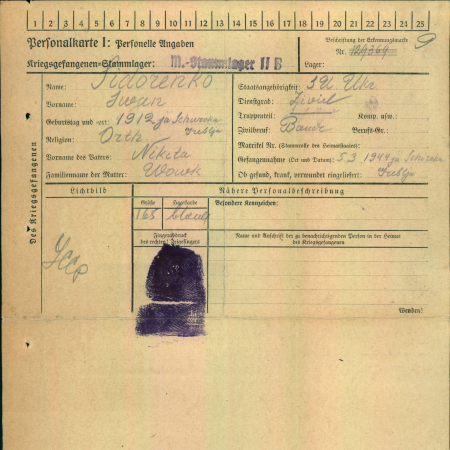 1 2 3 4 5 6 7 8 9 10 11 12 13 14 15 16 17 18 19 20 21 22 23 24 25
Personalkarte I: Personelle Angaben
Beschriftung der Erkennungsmarke
9
Kriegsgefangenen-Stammlager: M.-Stammlager II B
Nr.
Lager:
Des Kriegsgefangenen
Name: Sidorenko
Staatsangehörigkeit: SU Ukr.
Vorname: Iwan
Dienstgrad: Zivil
Geburtstag und -ort: 1912
Truppenteil: Komp. usw.:
Religion: Orth
Zivilberuf: Bauer Berufs-Gr.:
Matrikel Nr. (Stammrolle des Heimatstaates):
Vorname des Vaters: Nikita
Gefangennahme (Ort und Datum): 5.3.1944
Familienname der Mutter: Wowk
Ob gesund, krank, verwundet eingeliefert:
Lichtbild
Nähere Personalbeschreibung
Größe
Haarfarbe
Besondere Kennzeichen:
165
Fingerabdruck
des rechten! Zeigefingers
Name und Anschrift der zu benachrichtigenden Person in der Heimat
des Kriegsgefangenen
Wenden!